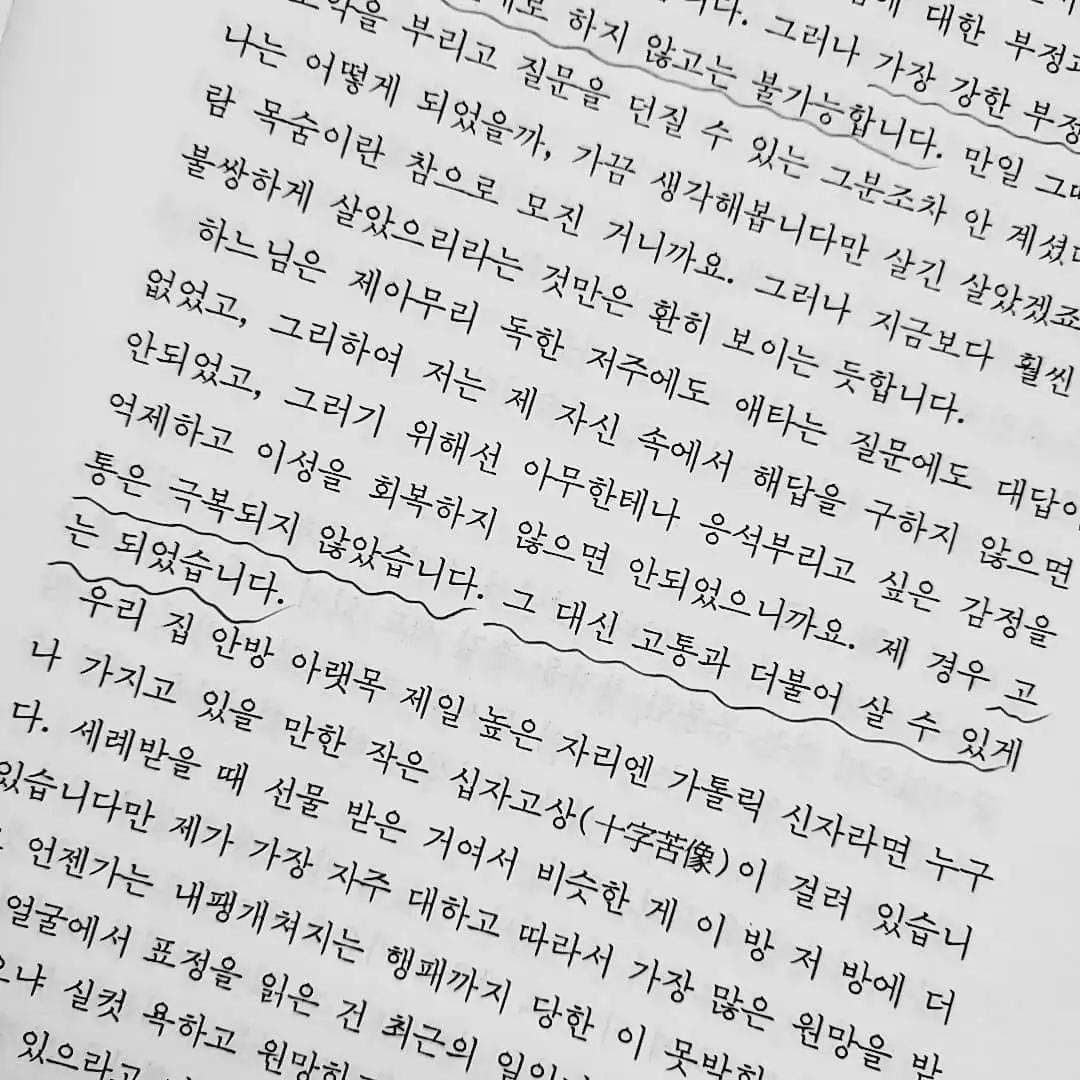 대한 부정
그러나 가장 강한 부정
하지 않고는 불가능합니다. 만일
부리고 질문을 던질 수 있는 그분조차 안 계셨
나는 어떻게 되었을까, 가끔 생각해봅니다만 살긴 살았겠죠
람 목숨이란 참으로 모진 거니까요. 그러나 지금보다 훨씬
불쌍하게 살았으리라는 것만은 환히 보이는 듯합니다.
하느님은 제아무리 독한 저주에도 애타는 질문에도 대답이
없었고, 그리하여 저는 제 자신 속에서 해답을 구하지 않으면
안되었고, 그러기 위해선 아무한테나 응석부리고 싶은 감정을
억제하고 이성을 회복하지 않으면 안되었으니까요. 제 경우 고
통은 극복되지 않았습니다. 그 대신 고통과 더불어 살 수 있게
는 되었습니다.
우리 집 안방 아랫목 제일 높은 자리엔 가톨릭 신자라면 누구
나 가지고 있을 만한 작은 십자고상(十字苦像)이 걸려 있습니
다. 세례받을 때 선물 받은 거여서 비슷한 게 이 방 저 방에 더
있습니다만 제가 가장 자주 대하고 따라서 가장 많은 원망을 받
언젠가는 내팽개쳐지는 행패까지 당한 이 못박히
얼굴에서 표정을 읽은 건 최근의
실컷 욕하고 원망하
있으라고